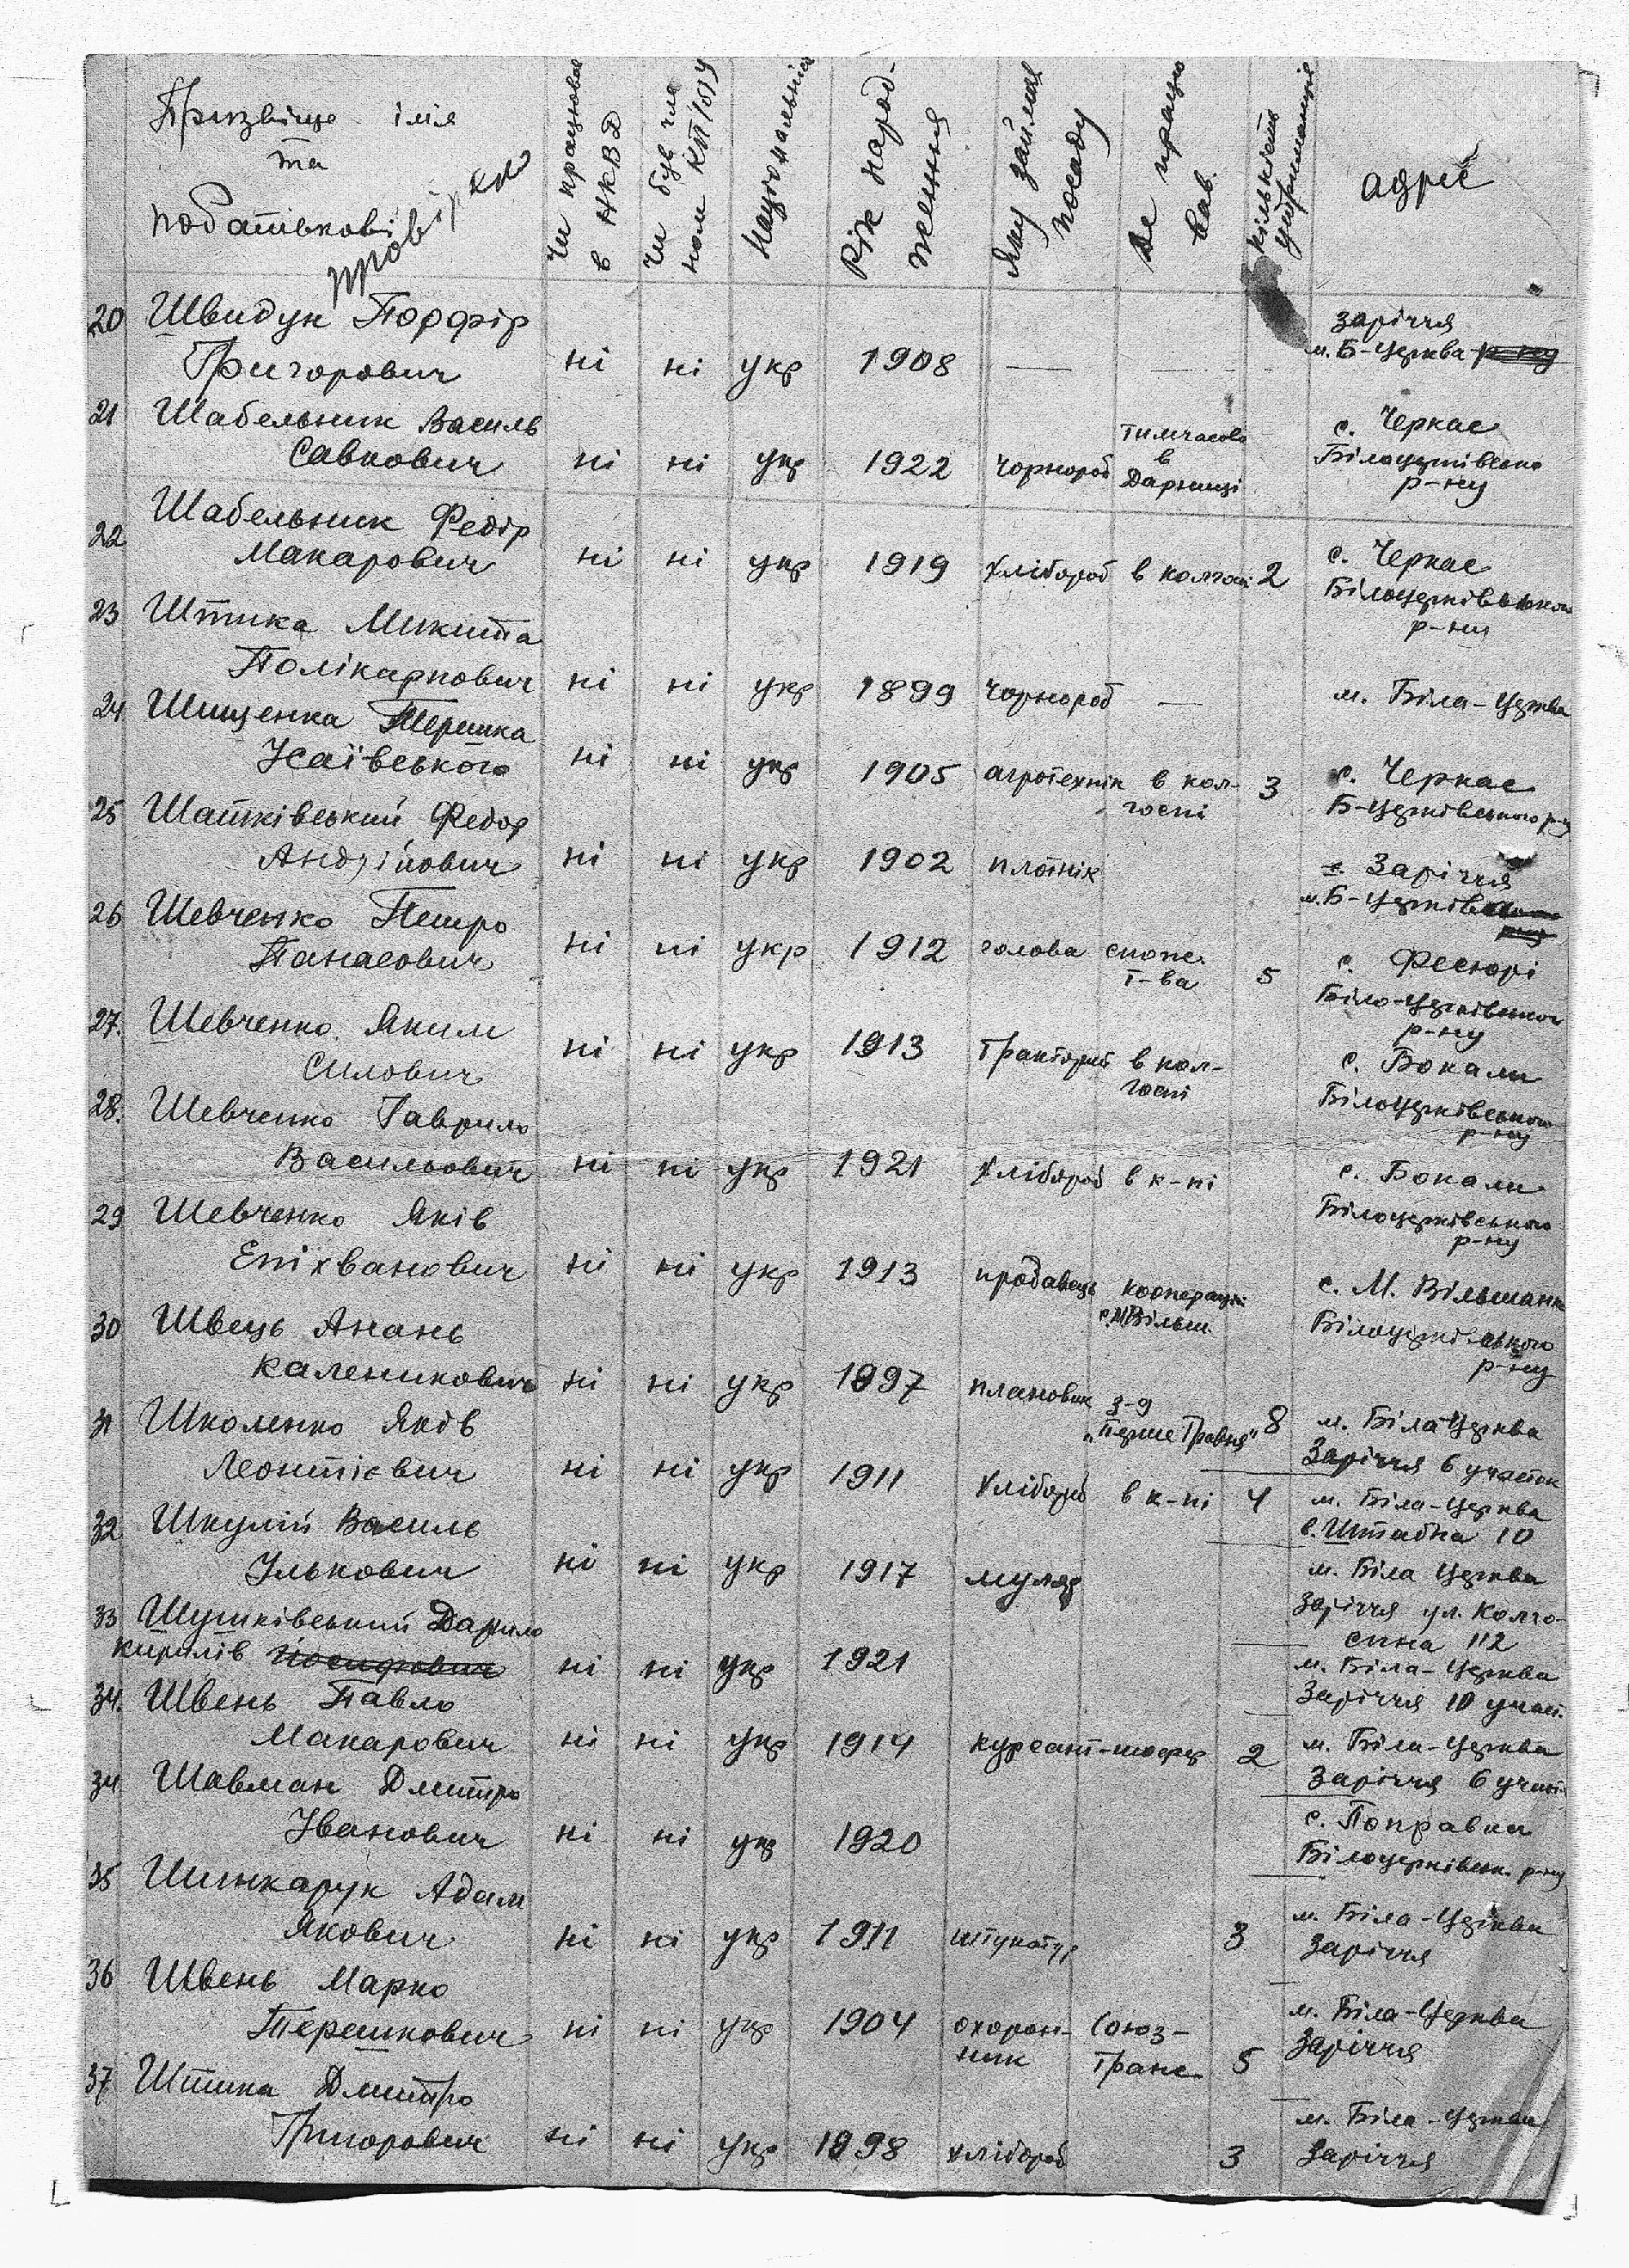 Призвіще імя
та
побатівкові
провірка
Чи працював
в НКВД
Чи був чле
ном КП/б/У
Національність
Рік народ-
ження
Яку займав
посаду
Де працю
вав.
кількість
утриманців
адрес
20 Швидун Порфір
Григорович ні ні укр 1908 — —
заріччя
м. Б-Церква
21 Шабельник Василь
Савкович ні ні укр 1922 чорнороб тимчасово
в
Дарниці
с. Черкас
Білоцерківсько
р-ну
22 Шабельник Федір
Макарович ні ні укр 1919 хлібороб в колгоспі 2
с. Черкас
Білоцерківського
р-ну
23 Штика Микита
Полікарпович ні ні укр 1899 чорнороб —
м. Біла-Церква
24 Шищенка Терешка
Ісаївського ні ні укр 1905 агротехнік в кол-
госпі 3
с. Черкас
Б-Церківського р-ну
25 Шатківський Федор
Андрійович ні ні укр 1902 плотнік
с. Заріччя
м. Б-Церків
26 Шевченко Петро
Панасович ні ні укр 1912 голова спож.
т-ва 5
с. Фесюрі
Біло-Церківського
р-ну
27. Шевченко Яким
Силович ні ні укр 1913 тракторист в кол-
госпі
с. Бокали
Білоцерківського
р-ну
28. Шевченко Гаврило
Васильович ні ні укр 1921 хлібороб в к-пі
с. Бокали
Білоцерківського
р-ну
29 Шевченко Яків
Епіхванович ні ні укр 1913 продавець кооперації
с. М Вільш.
с. М. Вільшанка
Білоцерківського
р-ну
30 Швець Анань
Каленикович ні ні укр 1897 плановик з-д
„Перше Травня" 8
м. Біла Церква
Заріччя 6 участок
31 Школенко Яків
Леонтієвич ні ні укр 1911 хлібороб в к-пі 4
м. Біла-Церква
в. Штабна 10
32 Шкулій Василь
Ількович ні ні укр 1917 муляр
м. Біла Церква
Заріччя ул. Колго-
спна 112
33 Шушківський Данило
Кирилів Йосифович ні ні укр 1921
м. Біла-Церква
Заріччя 10 участ.
34. Швень Павло
Макарович ні ні укр 1914 курсант-шофер 2
м. Біла-Церква
Заріччя 6 участ.
34 Шавман Дмитро
Іванович ні ні укр 1920
с. Поправки
Білоцерківськ. р-ну
35 Шинкарук Адам
Якович ні ні укр 1911 штукатур 3
м. Біла-Церква
Заріччя
36 Швень Марко
Терешкович ні ні укр 1904 охорон-
ник Союз-
транс 5
м. Біла-Церква
Заріччя
37 Штика Дмитро
Григорович ні ні укр 1898 хлібороб 3
м. Біла-Церква
Заріччя